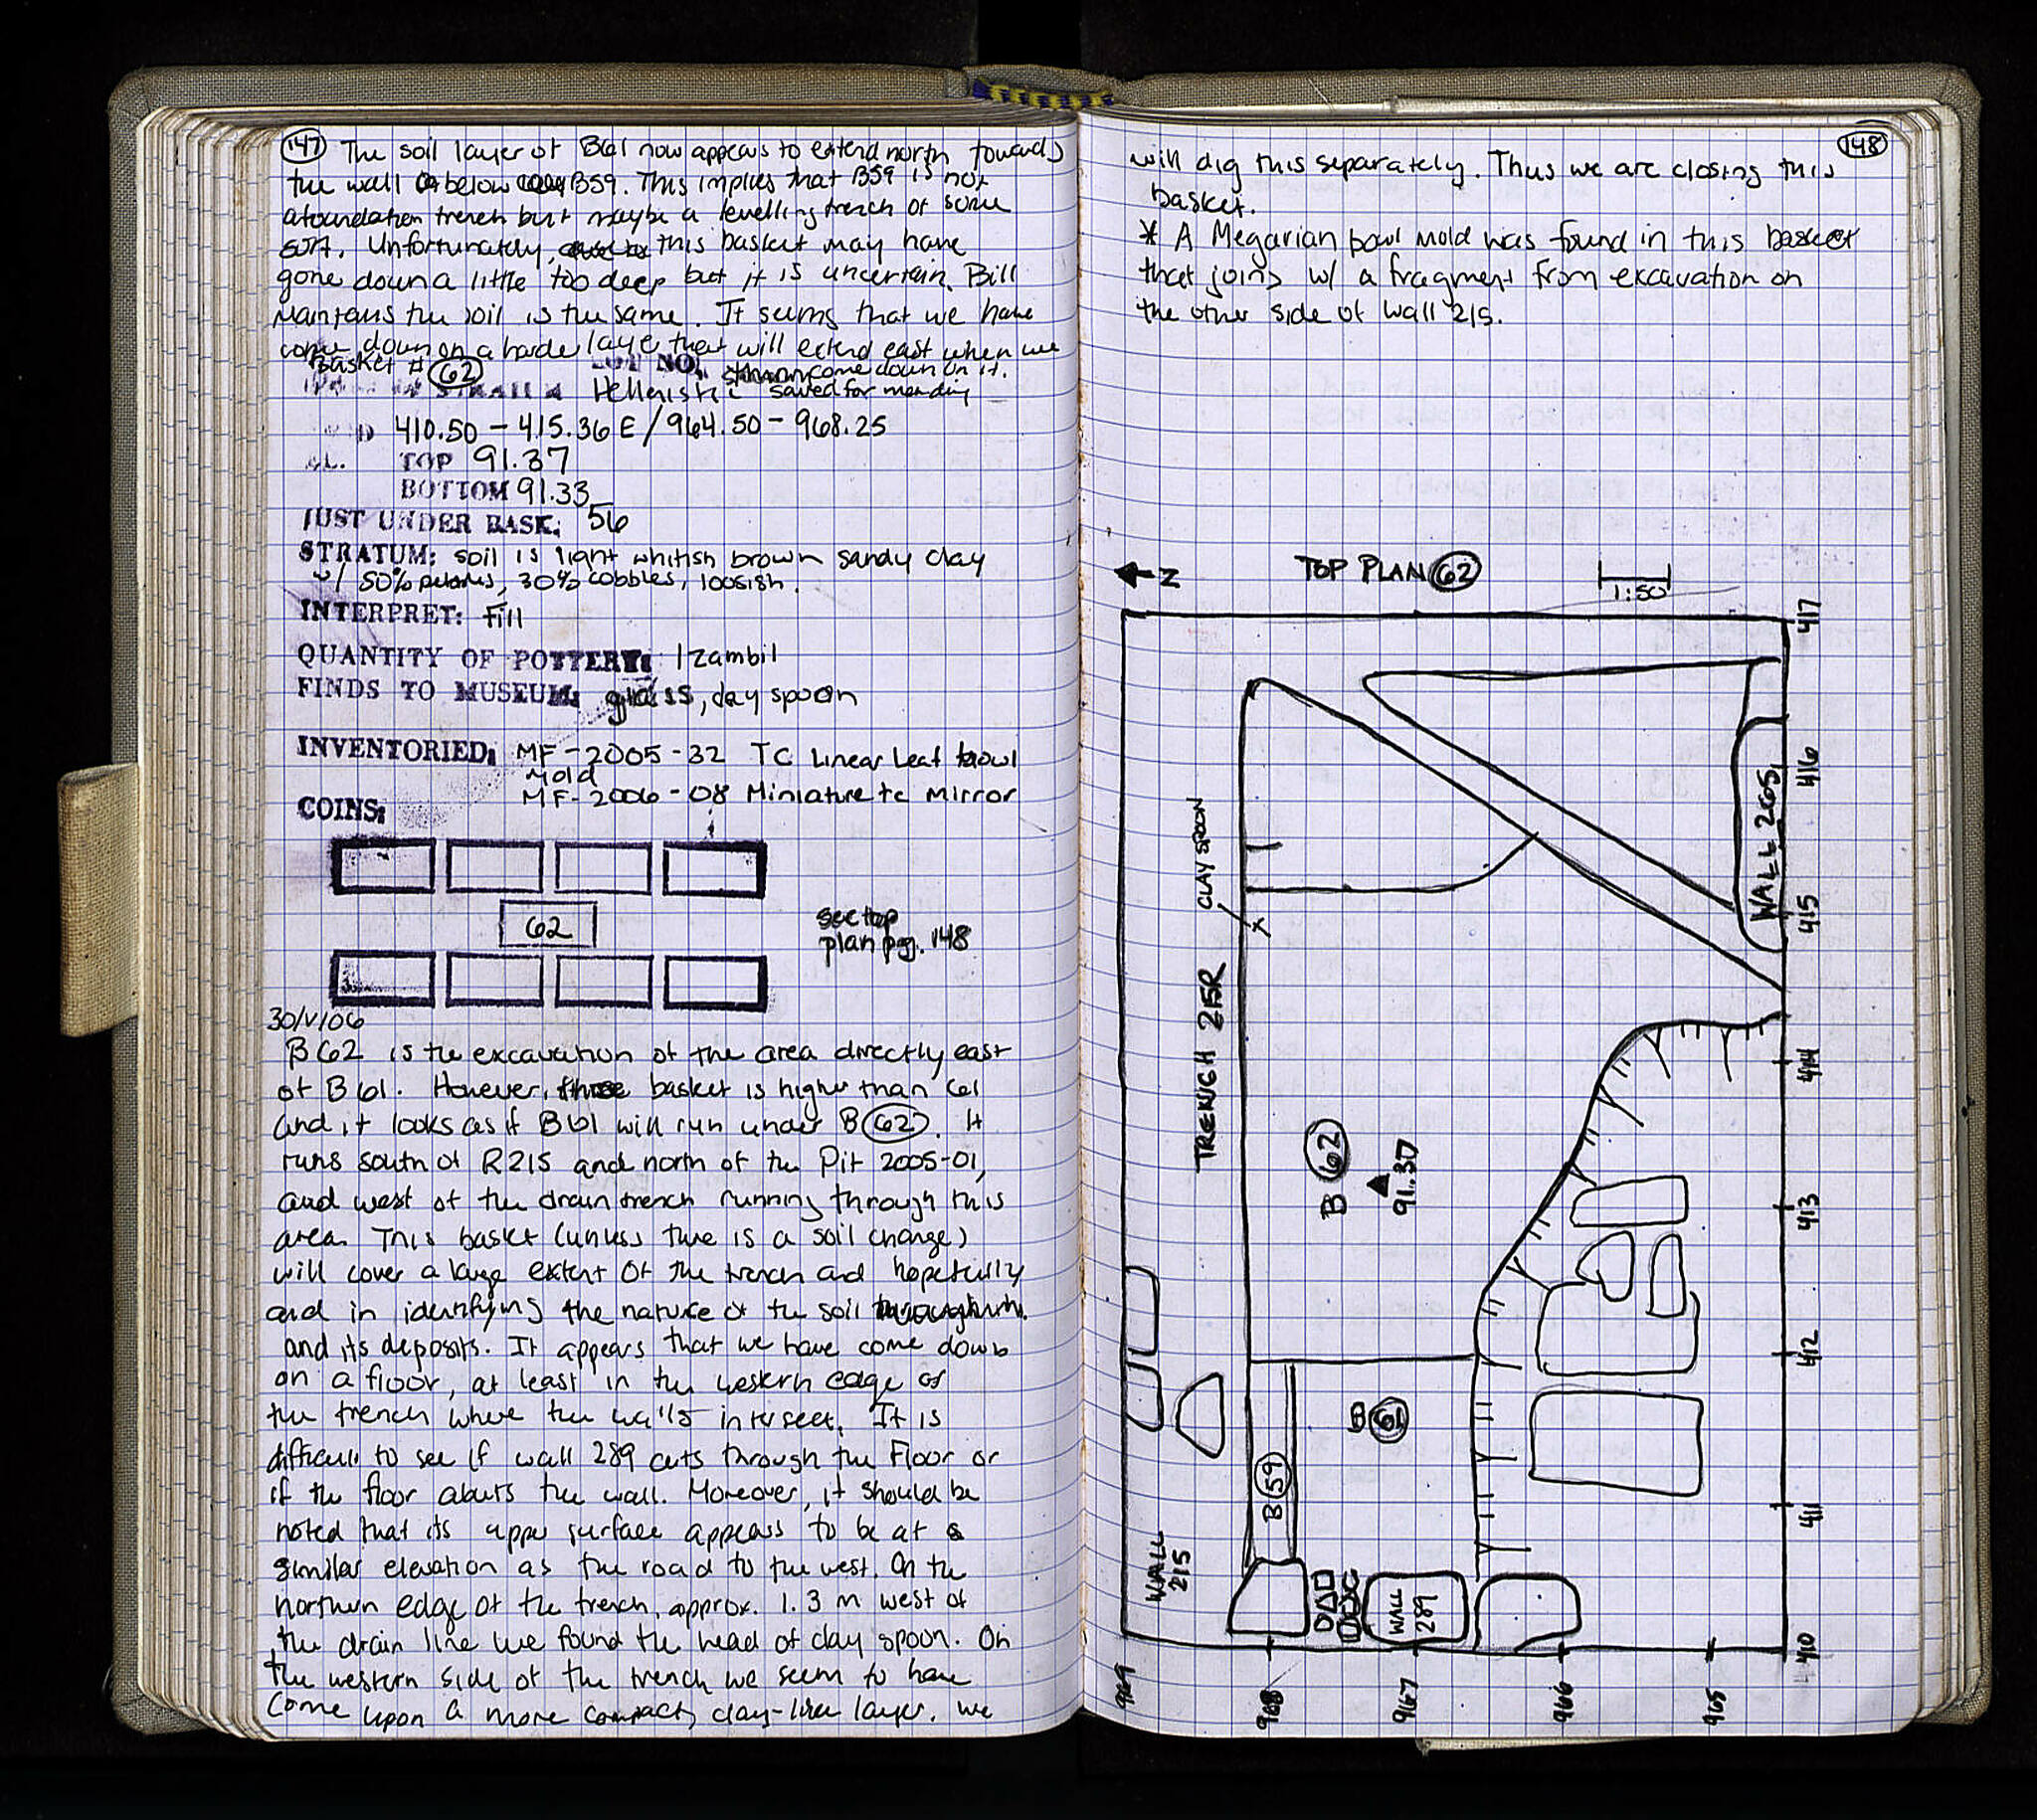 147 The soil layer of B61 now appears to extend north towards
the wall below B59. This implies that B59 is not
a foundation trench but maybe a levelling trench of some
sort. Unfortunately, this basket may have
gone down a little too deep but it is uncertain. Bill
maintains the soil is the same. It seems that we have
come down on a harder layer that will extend east when we
come down on it.
Basket # 62 LOT NO.
Hellenistic saved for mending
410.50 - 415.36 E / 964.50 - 968.25
EL. TOP 91.37
BOTTOM 91.33
JUST UNDER BASK: 56
STRATUM: soil is light whitish brown sandy clay
w/ 50% pebbles, 30% cobbles, loosish.
INTERPRET: fill
QUANTITY OF POTTERY: 1 zambil
FINDS TO MUSEUM: glass, clay spoon
INVENTORIED: MF-2005-32 TC Linear Leaf bowl
Mold
MF-2006-08 Miniature tc mirror
COINS:
62
see top
plan pg. 148
30/V/06
B62 is the excavation of the area directly east
of B61. However, basket is higher than 61
and it looks as if B61 will run under B 62. It
runs south of R215 and north of the Pit 2005-01,
and west of the drain trench running through this
area. This basket (unless there is a soil change)
will cover a large extent of the trench and hopefully
aid in identifying the nature of the soil
and its deposits. It appears that we have come down
on a floor, at least in the western edge of
the trench where the walls intersect. It is
difficult to see if wall 289 cuts through the Floor or
if the floor abuts the wall. Moreover, it should be
noted that its upper surface appears to be at a
similar elevation as the road to the west. On the
northern edge of the trench, approx. 1.3 m west of
the drain line we found the head of clay spoon. On
the western side of the trench we seem to have
come upon a more compact, clay-like layer. we
148
will dig this separately. Thus we are closing this
basket.
* A Megarian bowl mold was found in this basket
that joins w/ a fragment from excavation on
the other side of wall 215.
N
TOP PLAN 62
1:50
417
416
415
414
413
412
411
410
969
968
967
966
965
WALL 265
CLAY SPOON
X
TRENCH 215R
B 62
91.37
B 61
B 59
WALL
215
WALL
289